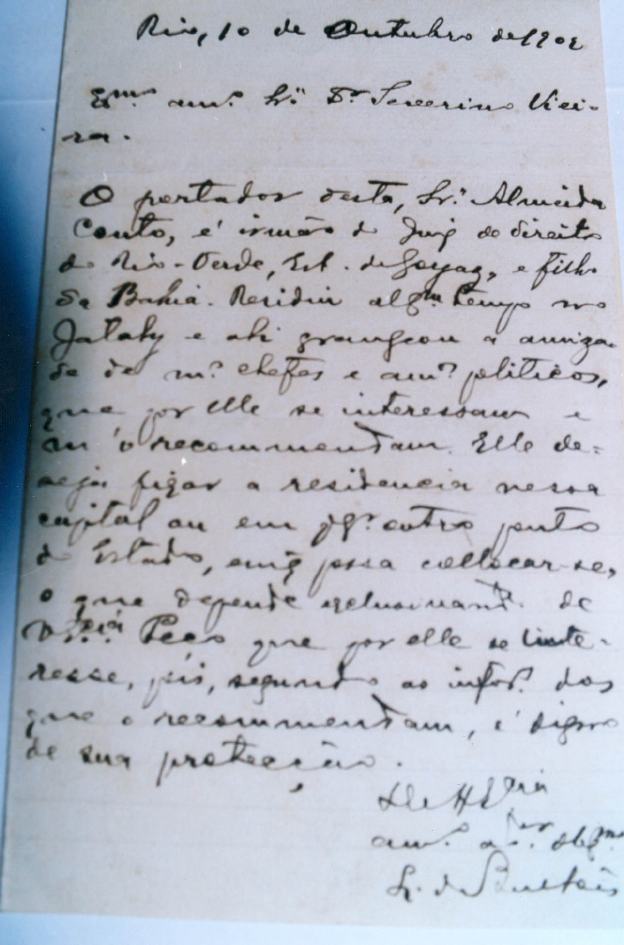 Rio, 10 de Outubro de 1902
Exmº. amº. Sr. Dr. Severino Viei-
ra.
O portador desta, Sr. Almeida
Couto, é irmão do Juiz de direito
do Rio-Verde, Est. de Goyaz, e filho
da Bahia. Residiu algm tempo no
Jatahy e ahi grangeou a amiza-
de de ms. chefes e ams. politicos,
que por elle se interessam e
m'o recommendam. Elle de-
seja fixar a residencia nessa
capital ou em qqr. outro ponto
do Estado, em q possa collocar-se,
o que depende exclusivamt. de
V. Excia. Peço que por elle se inte-
resse, pois, segundo as infor. dos
que o recommendam, é digno
de sua protecção.
De V. Excia
amº. obgmº